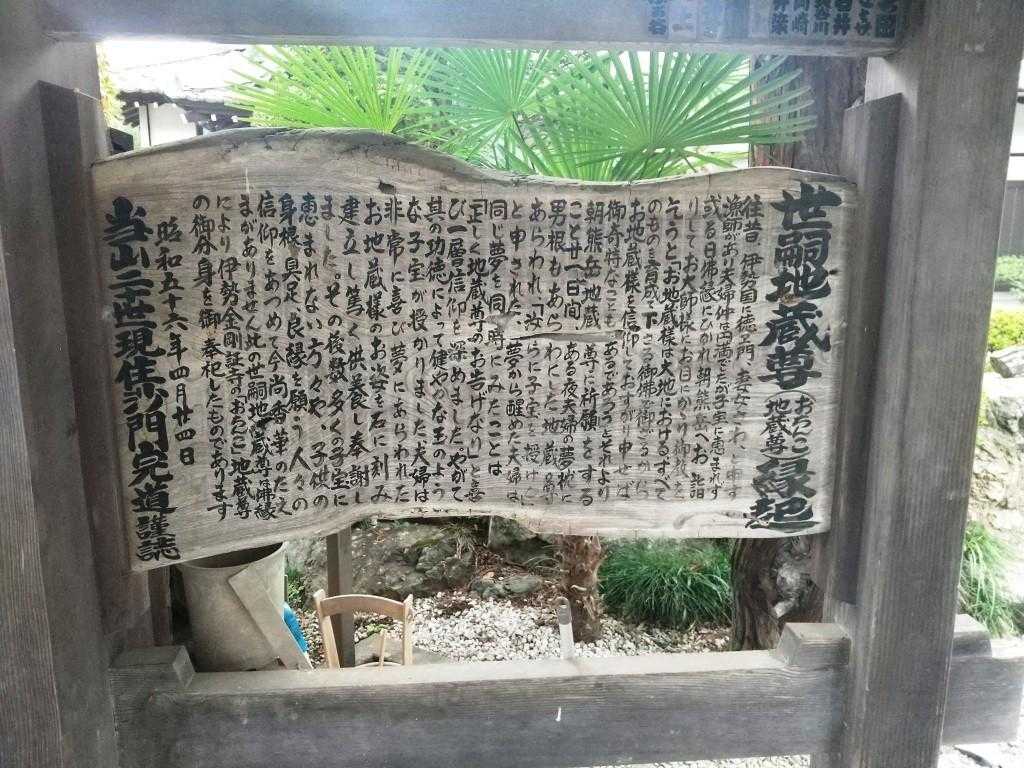 世嗣地蔵尊(おちんこ地蔵尊)縁起
往昔 伊勢国に徳ヱ門 妻 と申す
漁師があり夫婦仲は円満でしたが子宝に恵まれず
或る日佛縁にひかれ朝熊岳へお詣
りしてお大師様にお目にかかり御教を
乞うと「お地蔵様は大地におけるすべて
のものを育成下さる御佛の御心から
お地蔵様を信仰しておすがり申せば
御奇特なこともあるであろう」とそれより
朝熊岳地蔵尊に祈願をする
こと廿一日間 ある夜夫婦の夢枕に
男根をもあらわにしたお地蔵尊
あらわれ「汝らに子宝を授けん」
と申された 夢から醒めた夫婦は
同じ夢を同じ時にみたことは
「正しく地蔵尊のお告げなり」と喜
び一層信仰を深めました やがて
其の功徳によって健やかな玉のよう
な子宝が授かりました夫婦は
非常に喜び夢にあらわれた
お地蔵様のお姿を石に刻み
建立し篤く供養し奉謝し
ました。その後数多くの子宝に
恵まれない方々や、子供の
身根具足、良縁を願う人々の
信仰をあつめて今尚香華のたえ
まがありません此の世嗣地蔵尊は佛縁
により伊勢金剛証寺の「おちんこ」地蔵尊
の御分身を御奉祀したものであります
昭和五十六年四月廿四日
当山二世現住 門完道謹誌